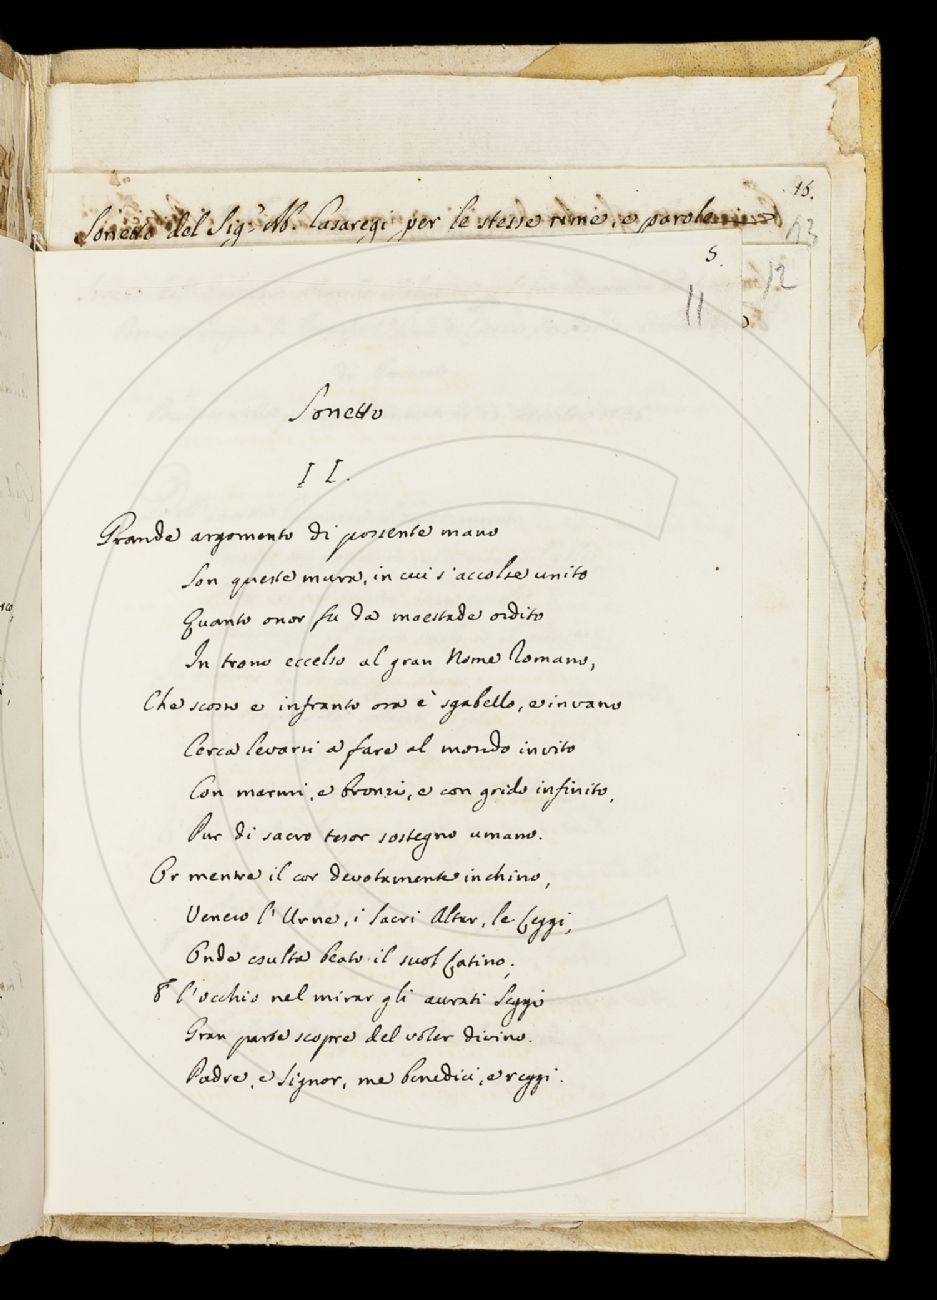 16.
Sonetto del Sig.r Ab. Casaregi per le stesse rime, e parole
13
5.
12
11
Sonetto
II.
Grande argomento di possente mano
Son queste mura, in cui s'accolse unito
Quanto onor fu da maestade ordito
In trono eccelso al gran Nome Romano,
Che scosso e infranto ora è sgabello, e invano
Cerca levarsi a fare al mondo invito
Con marmi, e bronzi, e con grido infinito,
Pur di sacro tesor sostegno umano.
Or mentre il cor devotamente inchino,
Venero l'Urne, i Sacri Altar, le Leggi,
Onde esulta beato il suol Latino;
E l'occhio nel mirar gli aurati Seggi
Gran parte scopre del voler divino.
Padre, e Signor, me benedici, e reggi.